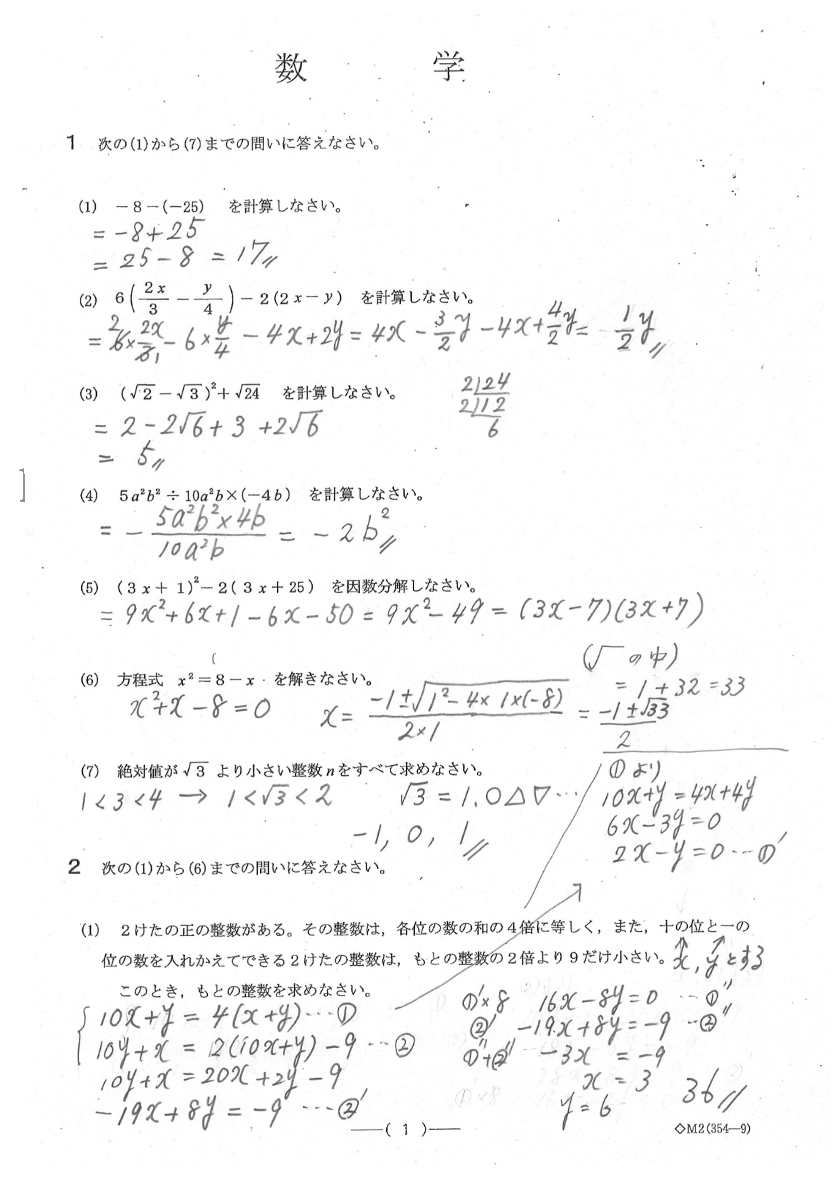 数 学
1 次の(1)から(7)までの問いに答えなさい。
(1) －8－(－25) を計算しなさい。
= -8+25
= 25-8 = 17
(2) 6(2x/3 － y/4)－2(2x－y) を計算しなさい。
= 6×2x/3 - 6×y/4 - 4x+2y = 4x - 3/2 y - 4x + 4/2 y = 1/2 y
(3) (√2－√3)²＋√24 を計算しなさい。
2)24
2)12
6
= 2-2√6+3+2√6
= 5
(4) 5a²b²÷10a²b×(－4b) を計算しなさい。
= - 5a²b²×4b / 10a²b = -2b²
(5) (3x＋1)²－2(3x＋25) を因数分解しなさい。
= 9x²+6x+1-6x-50 = 9x²-49 = (3x-7)(3x+7)
(6) 方程式 x²＝8－x を解きなさい。
x²+x-8=0
x = -1±√1²-4×1×(-8) / 2×1
= -1±√33 / 2
(√ の中)
= 1+32 = 33
(7) 絶対値が√3より小さい整数nをすべて求めなさい。
1<3<4 → 1<√3<2 √3 = 1.○△▽…
-1, 0, 1
①より
10x+y=4x+4y
6x-3y=0
2x-y=0 …①′
2 次の(1)から(6)までの問いに答えなさい。
(1) 2けたの正の整数がある。その整数は，各位の数の和の4倍に等しく，また，十の位と一の
位の数を入れかえてできる2けたの整数は，もとの整数の2倍より9だけ小さい。
x, yとする
このとき，もとの整数を求めなさい。
10x+y = 4(x+y) …①
10y+x = 2(10x+y)-9 …②
10y+x = 20x+2y-9
-19x+8y = -9 …②′
①′×8 16x-8y=0 …①″
②′ -19x+8y=-9 …②″
①″+②″ -3x = -9
x = 3
y = 6
36
( 1 )
◇M2(354—9)